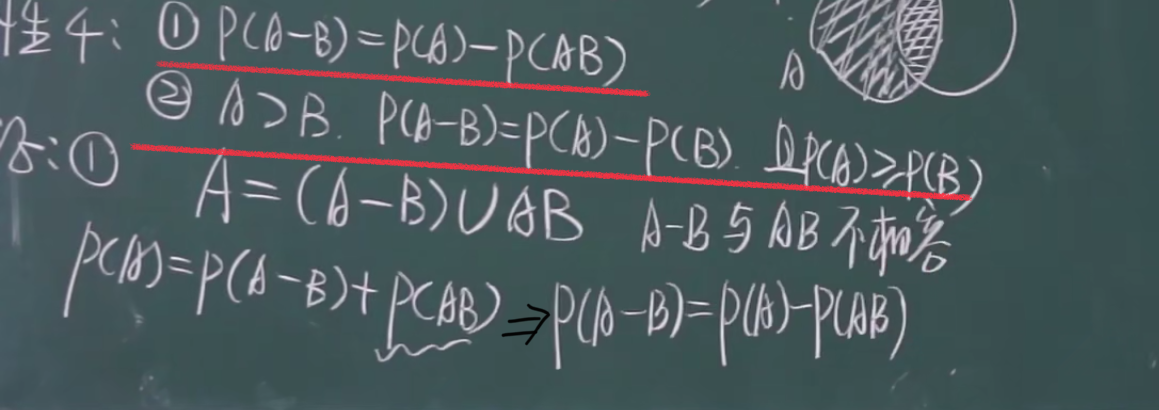 性4: ① P(A-B)=P(A)-P(AB)
A
② A⊃B. P(A-B)=P(A)-P(B). 且P(A)≥P(B)
: ①
A=(A-B)∪AB A-B与AB不相容
P(A)=P(A-B)+P(AB)⇒P(A-B)=P(A)-P(AB)